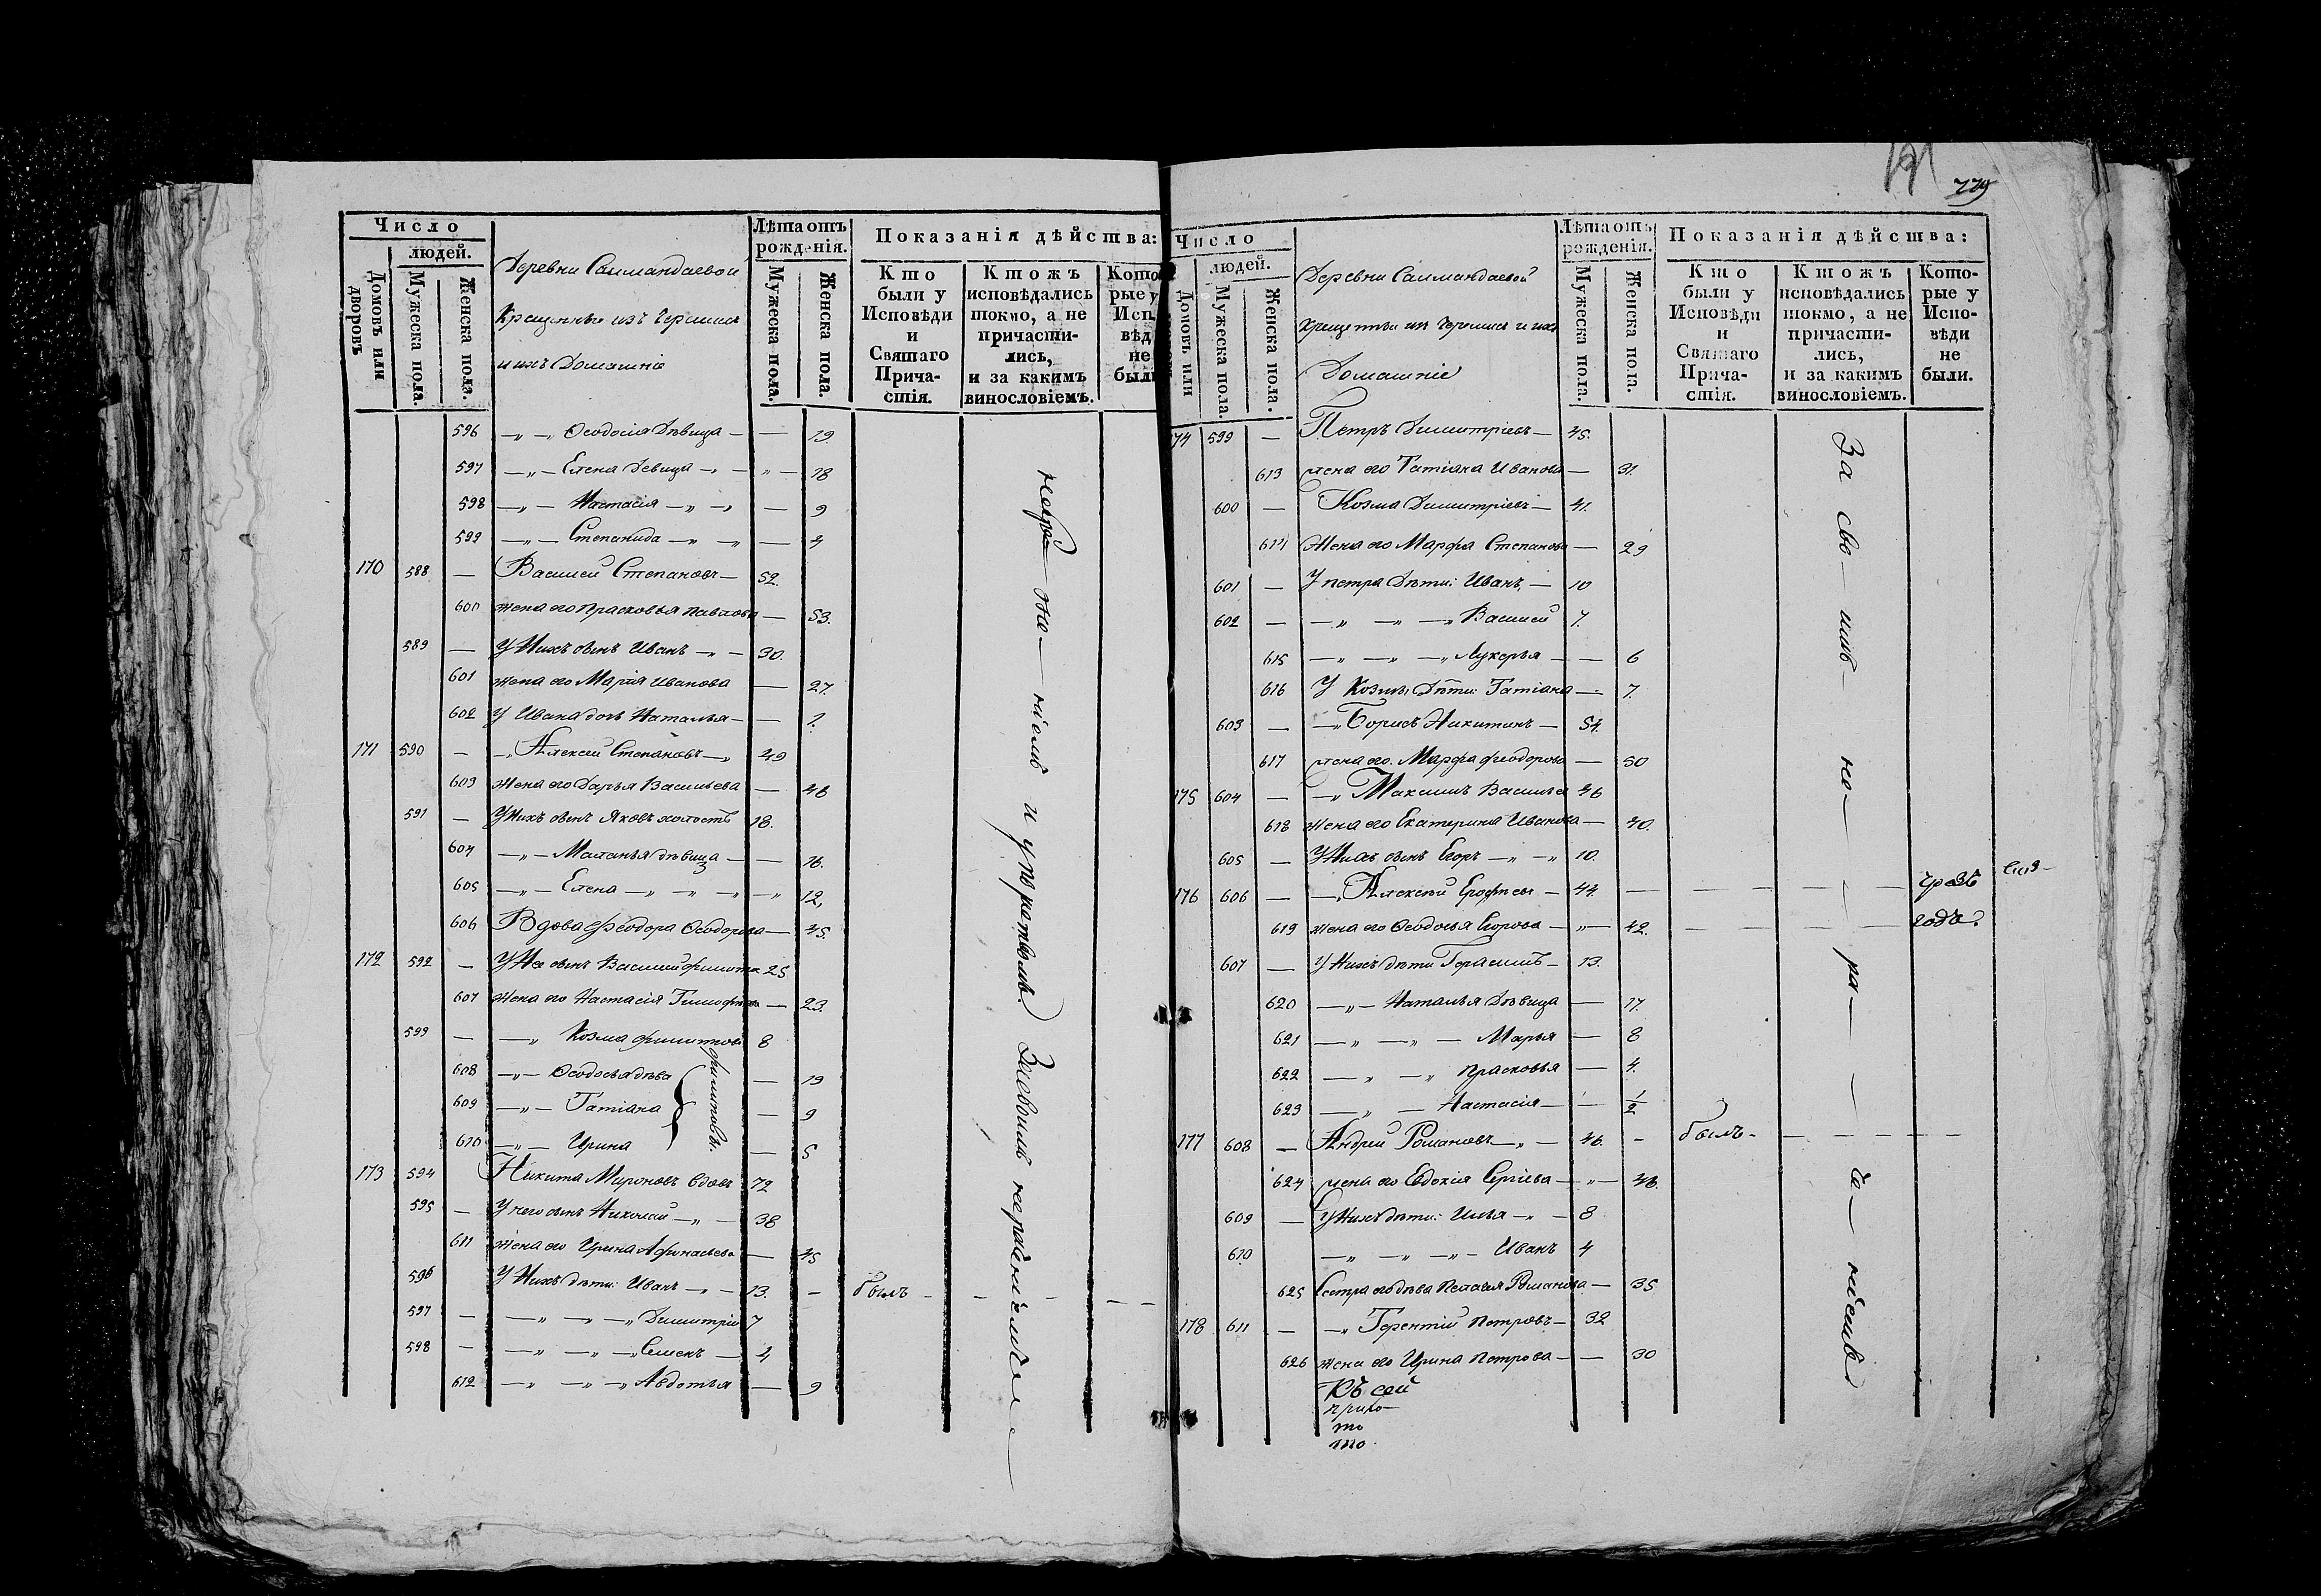 Число
людей.
Домовъ или дворовъ
Мужеска пола.
Женска пола.
Деревни Саимандаевои
Крещенные изъ Черемисъ
и ихъ Домашніе
Лѣта отъ рожденія.
Мужеска пола.
Женска пола.
Показанія дѣйства:
Кто были у Исповѣди и Святаго Причастія.
Ктожъ исповѣдались токмо, а не причастились, и за какимъ винословіемъ.
Кото рые у Исп вѣд не был
596 —„—„ Ѳеодосія Дѣвица — — 19.
597 —„— Елена Девица —„— „— 18
598 —„— Настасія —„—„ — 9
599 —„— Степанида —„—„ — 4
170 588 — Василей Степановъ — 52.
600 жена его Прасковья Павлова — 53.
589 — У Нихъ сынъ Иванъ —„— 30.
601 жена его Марія Иванова — 27.
602 У Ивана дочь Наталья — —
171 590 — —„ Алексеи Степановъ —„ 49
603 Жена его Дарья Васильева — 48
591 — У Нихъ сынъ Яковъ холостъ 18.
604 —„— Маланья дѣвица — — 16.
605 —„— Елена —„—„—„ —„ 12.
606 Вдова Феодора Ѳеодорова — 45.
172 592 — У Нее сынъ Василий 25
607 Жена его Настасія Тимофеева — 23.
599 — —„ Козма Филиповъ 8
608 —„— Ѳеодосья дѣва — 19
609 —„— Татіана — 9
610 —„— Ирина — 5
173 594 Никита Мироновъ вдовъ 72
595 — У него сынъ Николай —„— 38
611 жена его Ирина Афонасьева — 45
596 У Нихъ дѣти: Иванъ —„— 13. — былъ — — — — —
597 — —„ —„ —„ Димитріи 7
598 — —„ —„ —„ Семенъ — 4
612 —„ —„ —„ Авдотья — 9
779
Число
людей.
Домовъ или
Мужеска пола.
Женска пола.
Деревни Саимандаевой
крещеные изъ Черемисъ и ихъ
Домашніе
Лѣта отъ рожденія.
Мужеска пола.
Женска пола.
Показанія дѣйства:
Кто были у Исповѣди и Святаго Причастія.
Ктожъ исповѣдались токмо, а не причастились, и за какимъ винословіемъ.
Которые у Исповѣди не были.
174 599 — Петръ Димитріевъ — 45.
613 жена его Татіана Иванова — 31.
600 — Козма Димитріевъ — 41.
614 Жена его Марфа Степанова — 29
601 — У петра Дѣти: Иванъ, — 10
602 — —„ —„ —„ Василей 7.
615 —„ —„ —„ Лукерья — — 6
616 У Козмы Дѣти: Татіана — 7.
603 — —„ Борисъ Никитинъ — 54.
617 жена его. Марфа Феодорова — 50
175 604 — —„ Максимъ Васильев 46
618 жена его Екатерина Иванова — 40.
605 — У Нихъ сынъ Егоръ —„—„ 10.
176 606 — —„ Алексѣй Ерофеев — 44. — — — — — чрезъ
619 жена его Ѳеодосья Егорова — „— 42. — — — — годъ.
607 — У Нихъ дѣти Герасимъ — 13.
620 —„— Наталья Дѣвица — 17.
621 —„ —„ — Марья — 8
622 —„ —„ Прасковья — 4.
623 —„ — Настасія — — 1/2
177 608 — Андрей Романовъ —„— 46. — былъ — — — — —
624 жена его Евдокія Сергіева — „— 48.
609 — У Нихъ дѣти: Илья —„— 8
610 —„ —„ —„— Иванъ 4
625 Сестра его дѣва Пелагея Романова — 35
178 611 — —„ Терентій Петровъ — 32
626 жена его Ирина Петрова — — 30
Къ сей